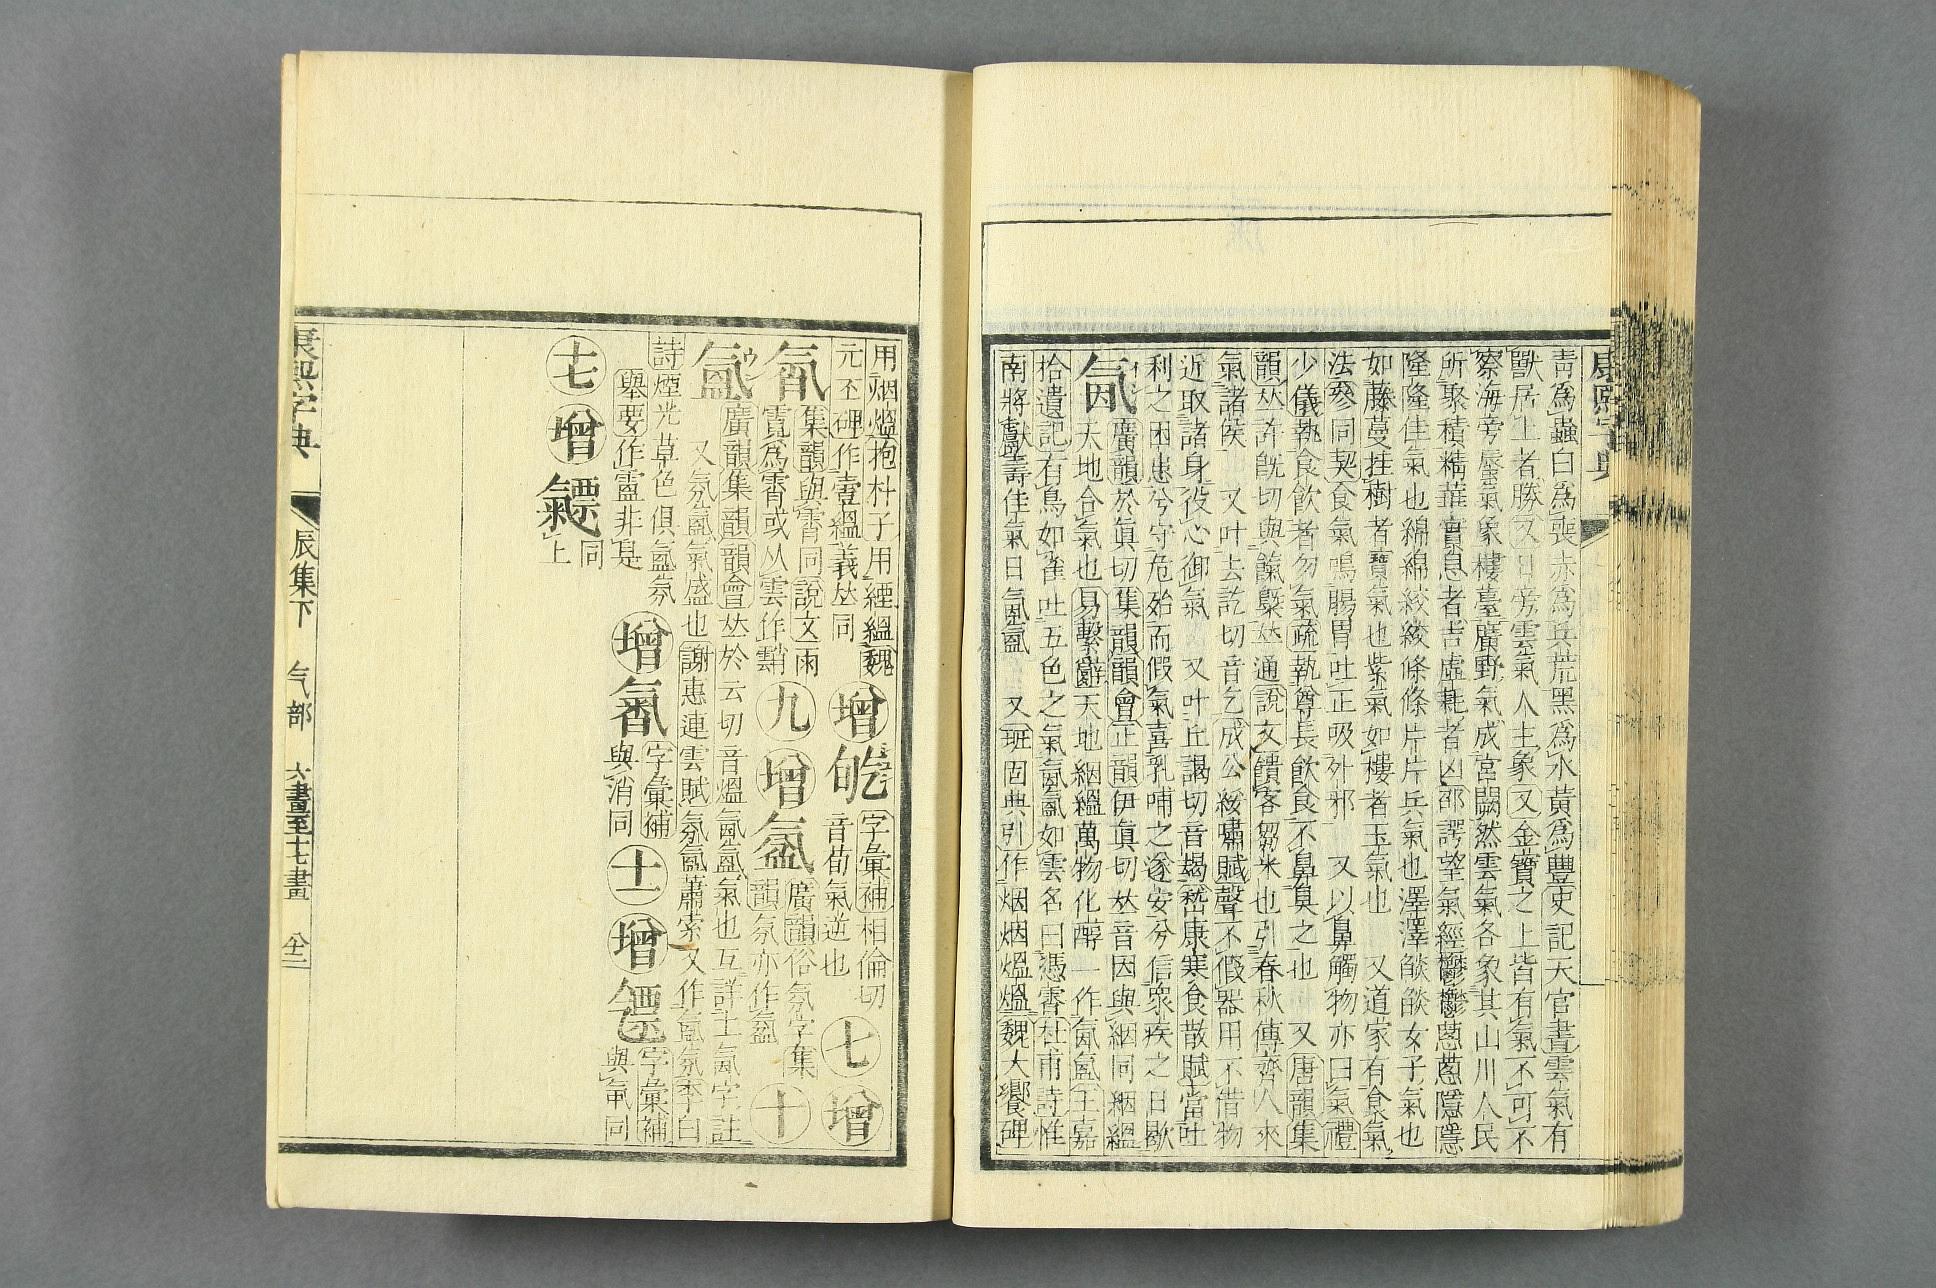 康熙字典
青爲蟲白爲喪赤爲兵荒黑爲水黃爲豐史記天官書雲氣有
獸居上者勝又日旁雲氣人主象又金寶之上皆有氣不可不
察海旁蜃氣象樓臺廣野氣成宮闕然雲氣各象其山川人民
所聚積精華實息者吉虛耗者凶邵諤望氣經鬱鬱蔥蔥隱隱
隆隆佳氣也綿綿絞絞條條片片兵氣也澤澤燄燄女子氣也
如藤蔓挂樹者寶氣也紫氣如樓者玉氣也 又道家有食氣
法參同契食氣鳴腸胃吐正吸外邪 又以鼻觸物亦曰氣禮
少儀執食飲者勿氣疏執尊長飲食不鼻臭之也 又唐韻集
韻𠀤許旣切與餼㮣𠀤通說文饋客芻米也引春秋傳齊人來
氣諸侯 又叶去訖切音乞成公綏嘯賦聲不假器用不借物
近取諸身役心御氣 又叶丘謁切音朅嵆康寒食散賦當吐
利之困患兮守危殆而假氣喜乳哺之遂安兮信衆疾之日歇
氤
廣韻於眞切集韻韻會正韻伊眞切𠀤音因與絪同絪縕
天地合氣也易繫辭天地絪縕萬物化醇一作氤氳王嘉
拾遺記有鳥如雀吐五色之氣氤氳如雲名曰憑霄杜甫詩惟
南將獻壽佳氣日氤氳 又班固典引作烟烟熅熅魏大饗碑
用烟熅抱朴子用緸縕魏
元丕碑作壹縕義𠀤同
增
字彙補相倫切
音荀氣逆也
七 增
集韻與霄同說文雨
霓爲霄或从雲作䨭
九 增
廣韻俗氛字集
韻氛亦作
十
氳
廣韻集韻韻會𠀤於云切音熅氤氳氣也互詳上氤字註
又氛氳氣盛也謝惠連雲賦氛氳蕭索又作氳氛李白
詩煙光草色俱氳氛
舉要作䨵非是
增
字彙補
與消同
十一 增
字彙補
與
同
七 增
同
上
康熙字典 辰集下 气部 六畫至十七畫